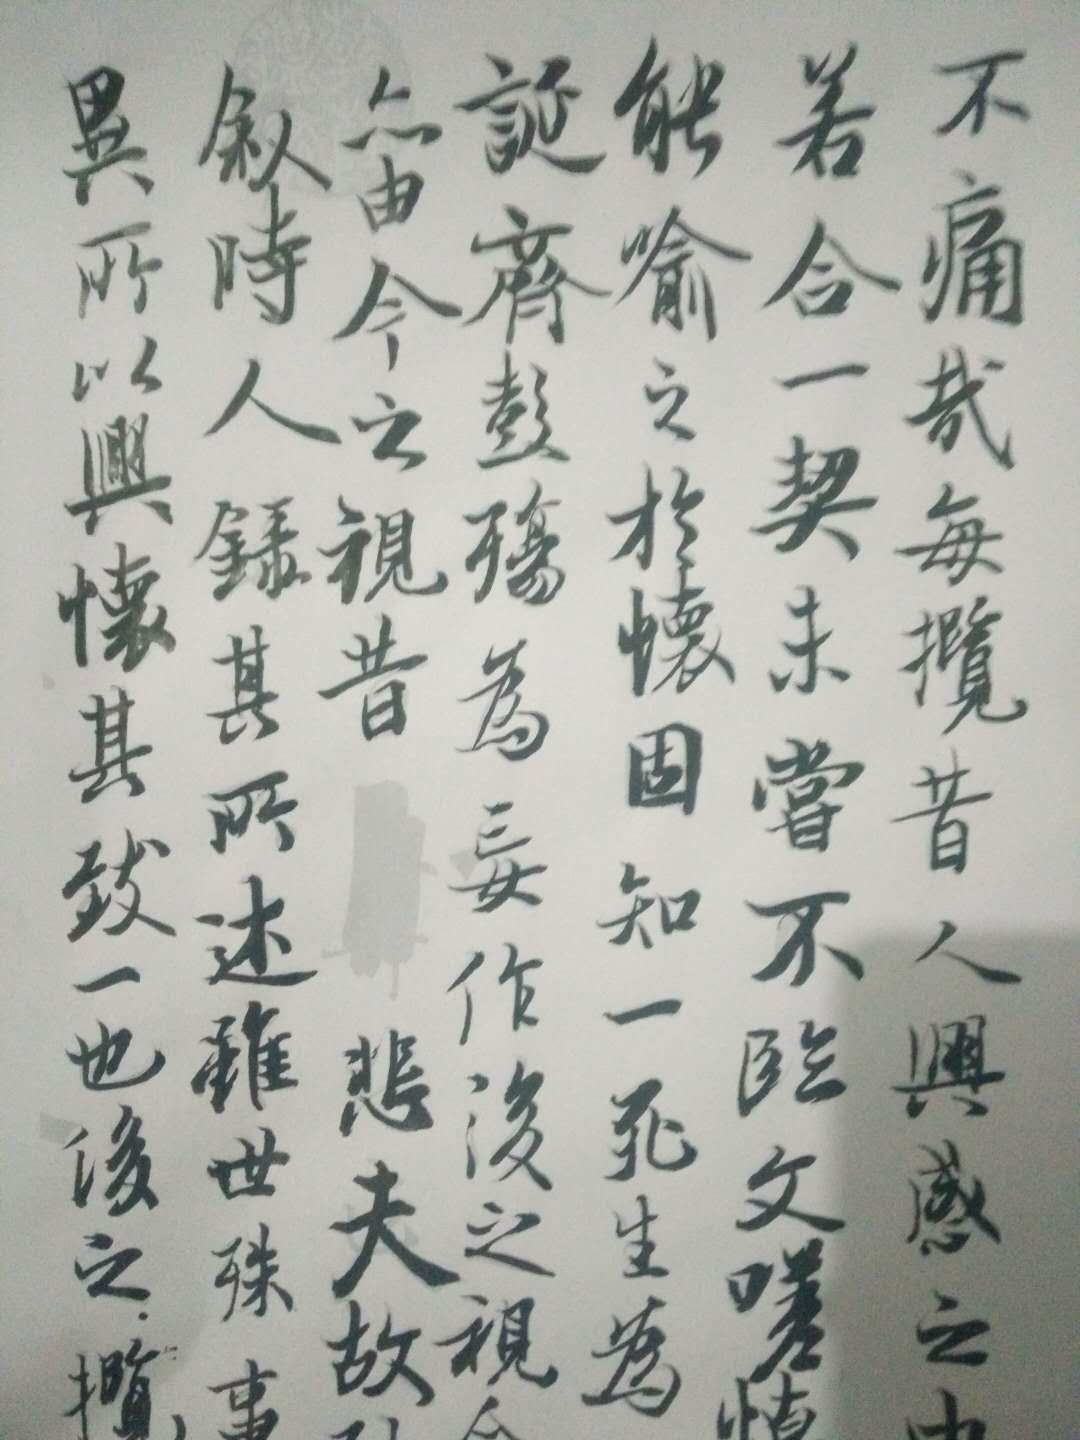 不痛哉每攬昔人興感之由
若合一契未嘗不臨文嗟悼
能喻之於懷固知一死生為
誕齊彭殤為妄作後之視今
亦由今之視昔悲夫故列
叙時人錄其所述雖世殊事
異所以興懷其致一也後之攬